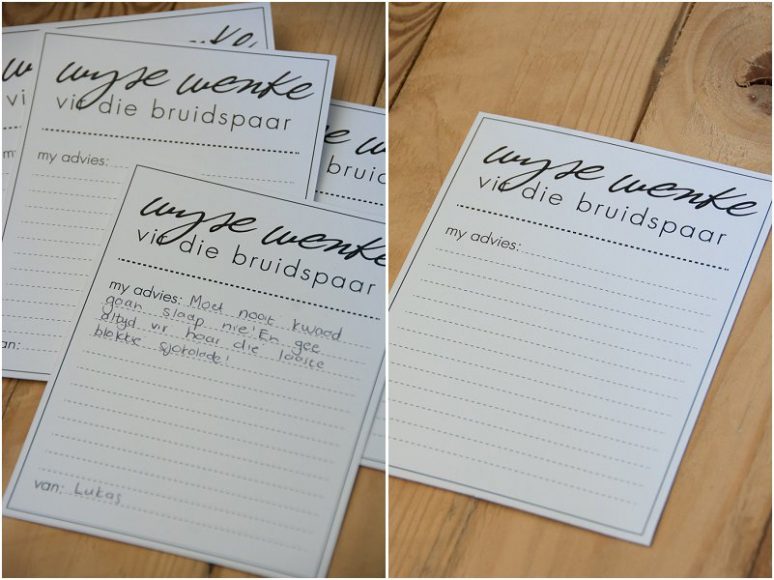 wyse wenke
vir die bruidspaar
my advies:
wyse wenke
vir die bruidspaar
my advies: Moet nooit kwaad
gaan slaap nie! En gee
altyd vir haar die laaste
blokkie sjokolade!
van: Lukas
van:
wyse wenke
vir die bruidspaar
my advies: